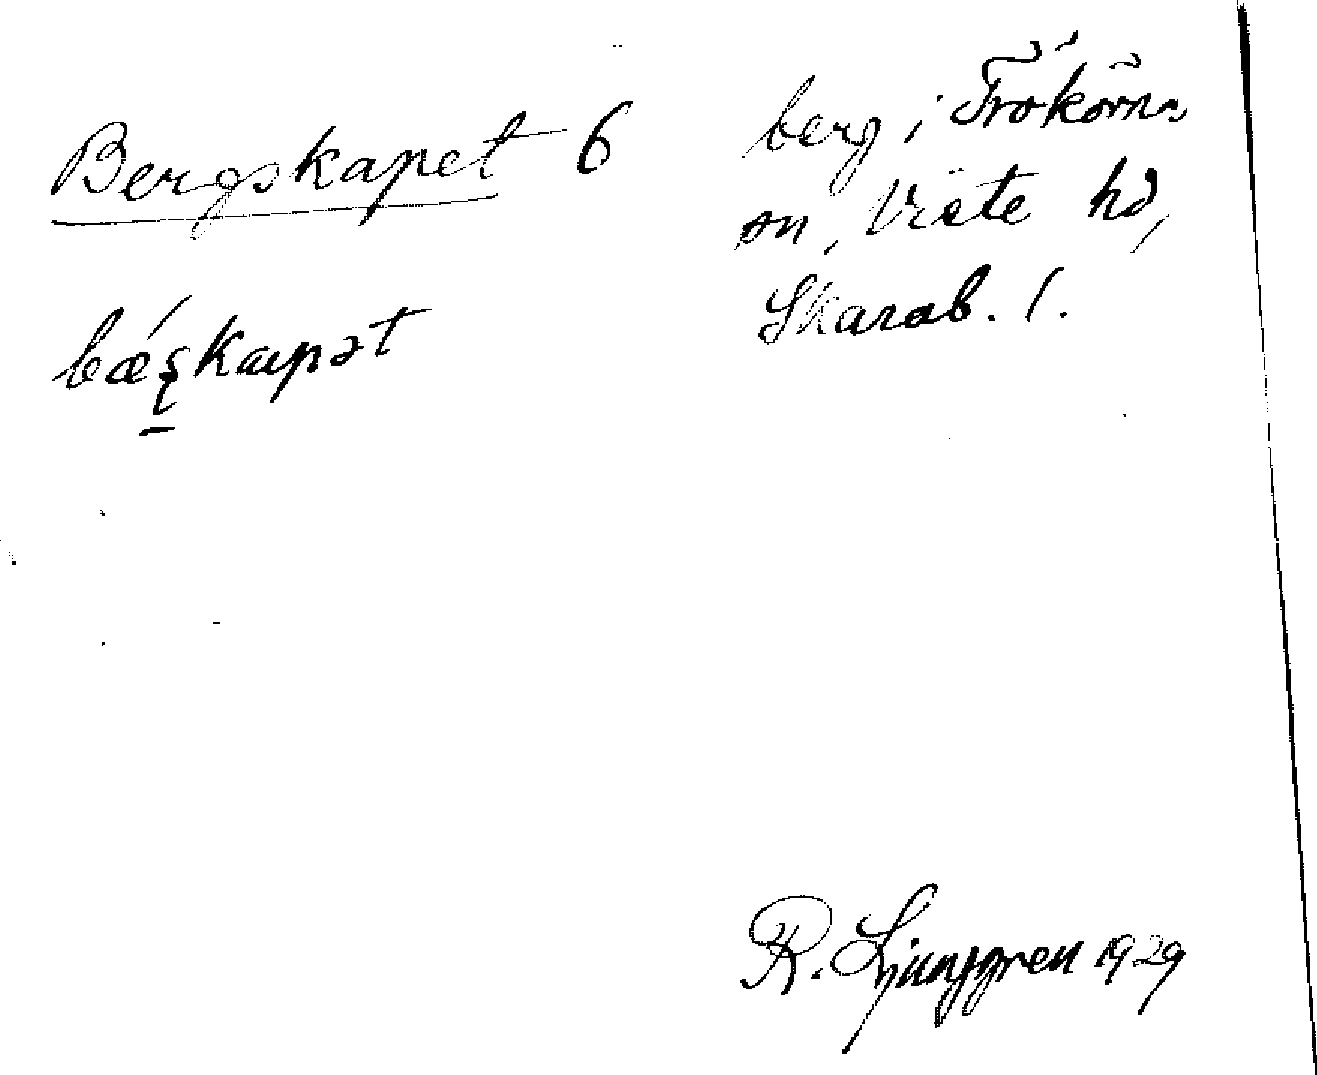 Bergskapet 6
bǽʂkapət
berg i Trökörna
sn, Viste hd,
Skarab. l.
R. Ljunggren 1929